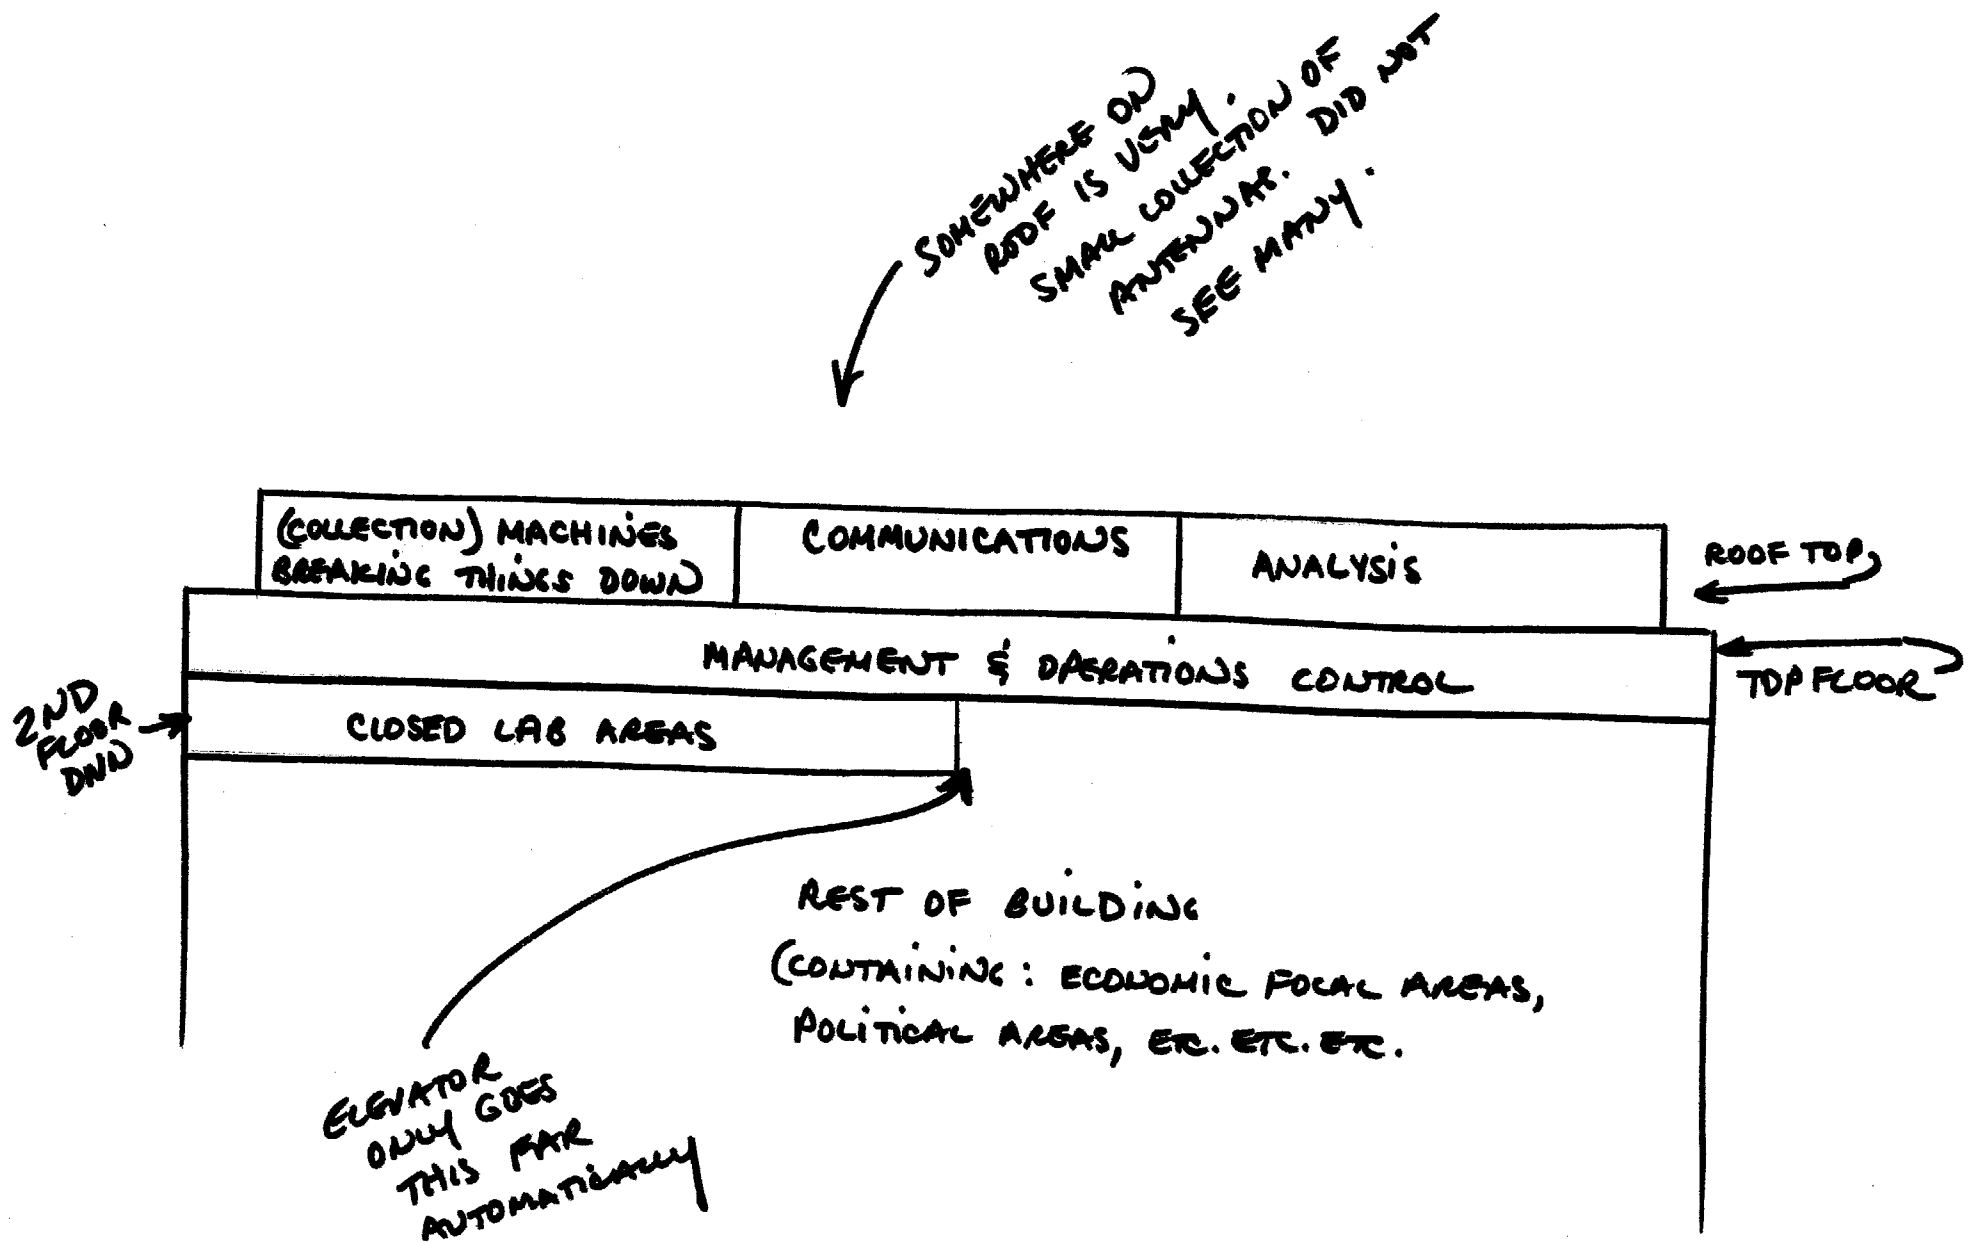 SOMEWHERE ON
ROOF IS VERY.
SMALL COLLECTION OF
ANTENNAS. DID NOT
SEE MANY.
(COLLECTION) MACHINES
BREAKING THINGS DOWN
COMMUNICATIONS
ANALYSIS
ROOF TOP
MANAGEMENT & OPERATIONS CONTROL
TOP FLOOR
2ND
FLOOR
DWN
CLOSED LAB AREAS
REST OF BUILDING
(CONTAINING: ECONOMIC FOCAL AREAS,
POLITICAL AREAS, ETC. ETC. ETC.
ELEVATOR
ONLY GOES
THIS FAR
AUTOMATICALLY